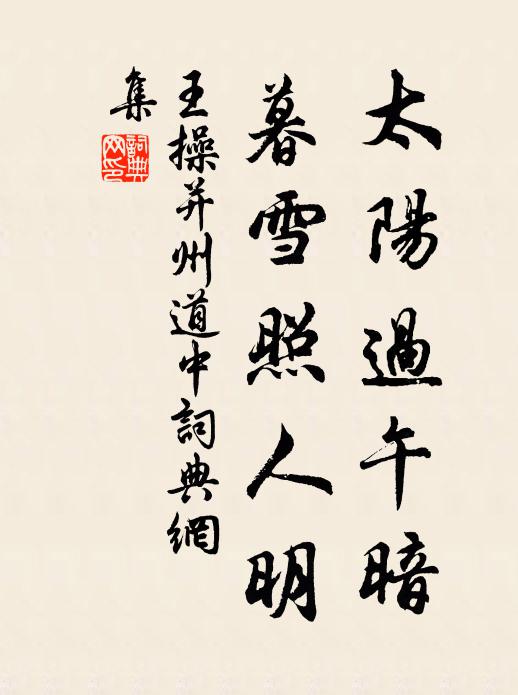 太陽過午暗
暮雪照人明
王操并州道中詞典網
集
詞典
網印